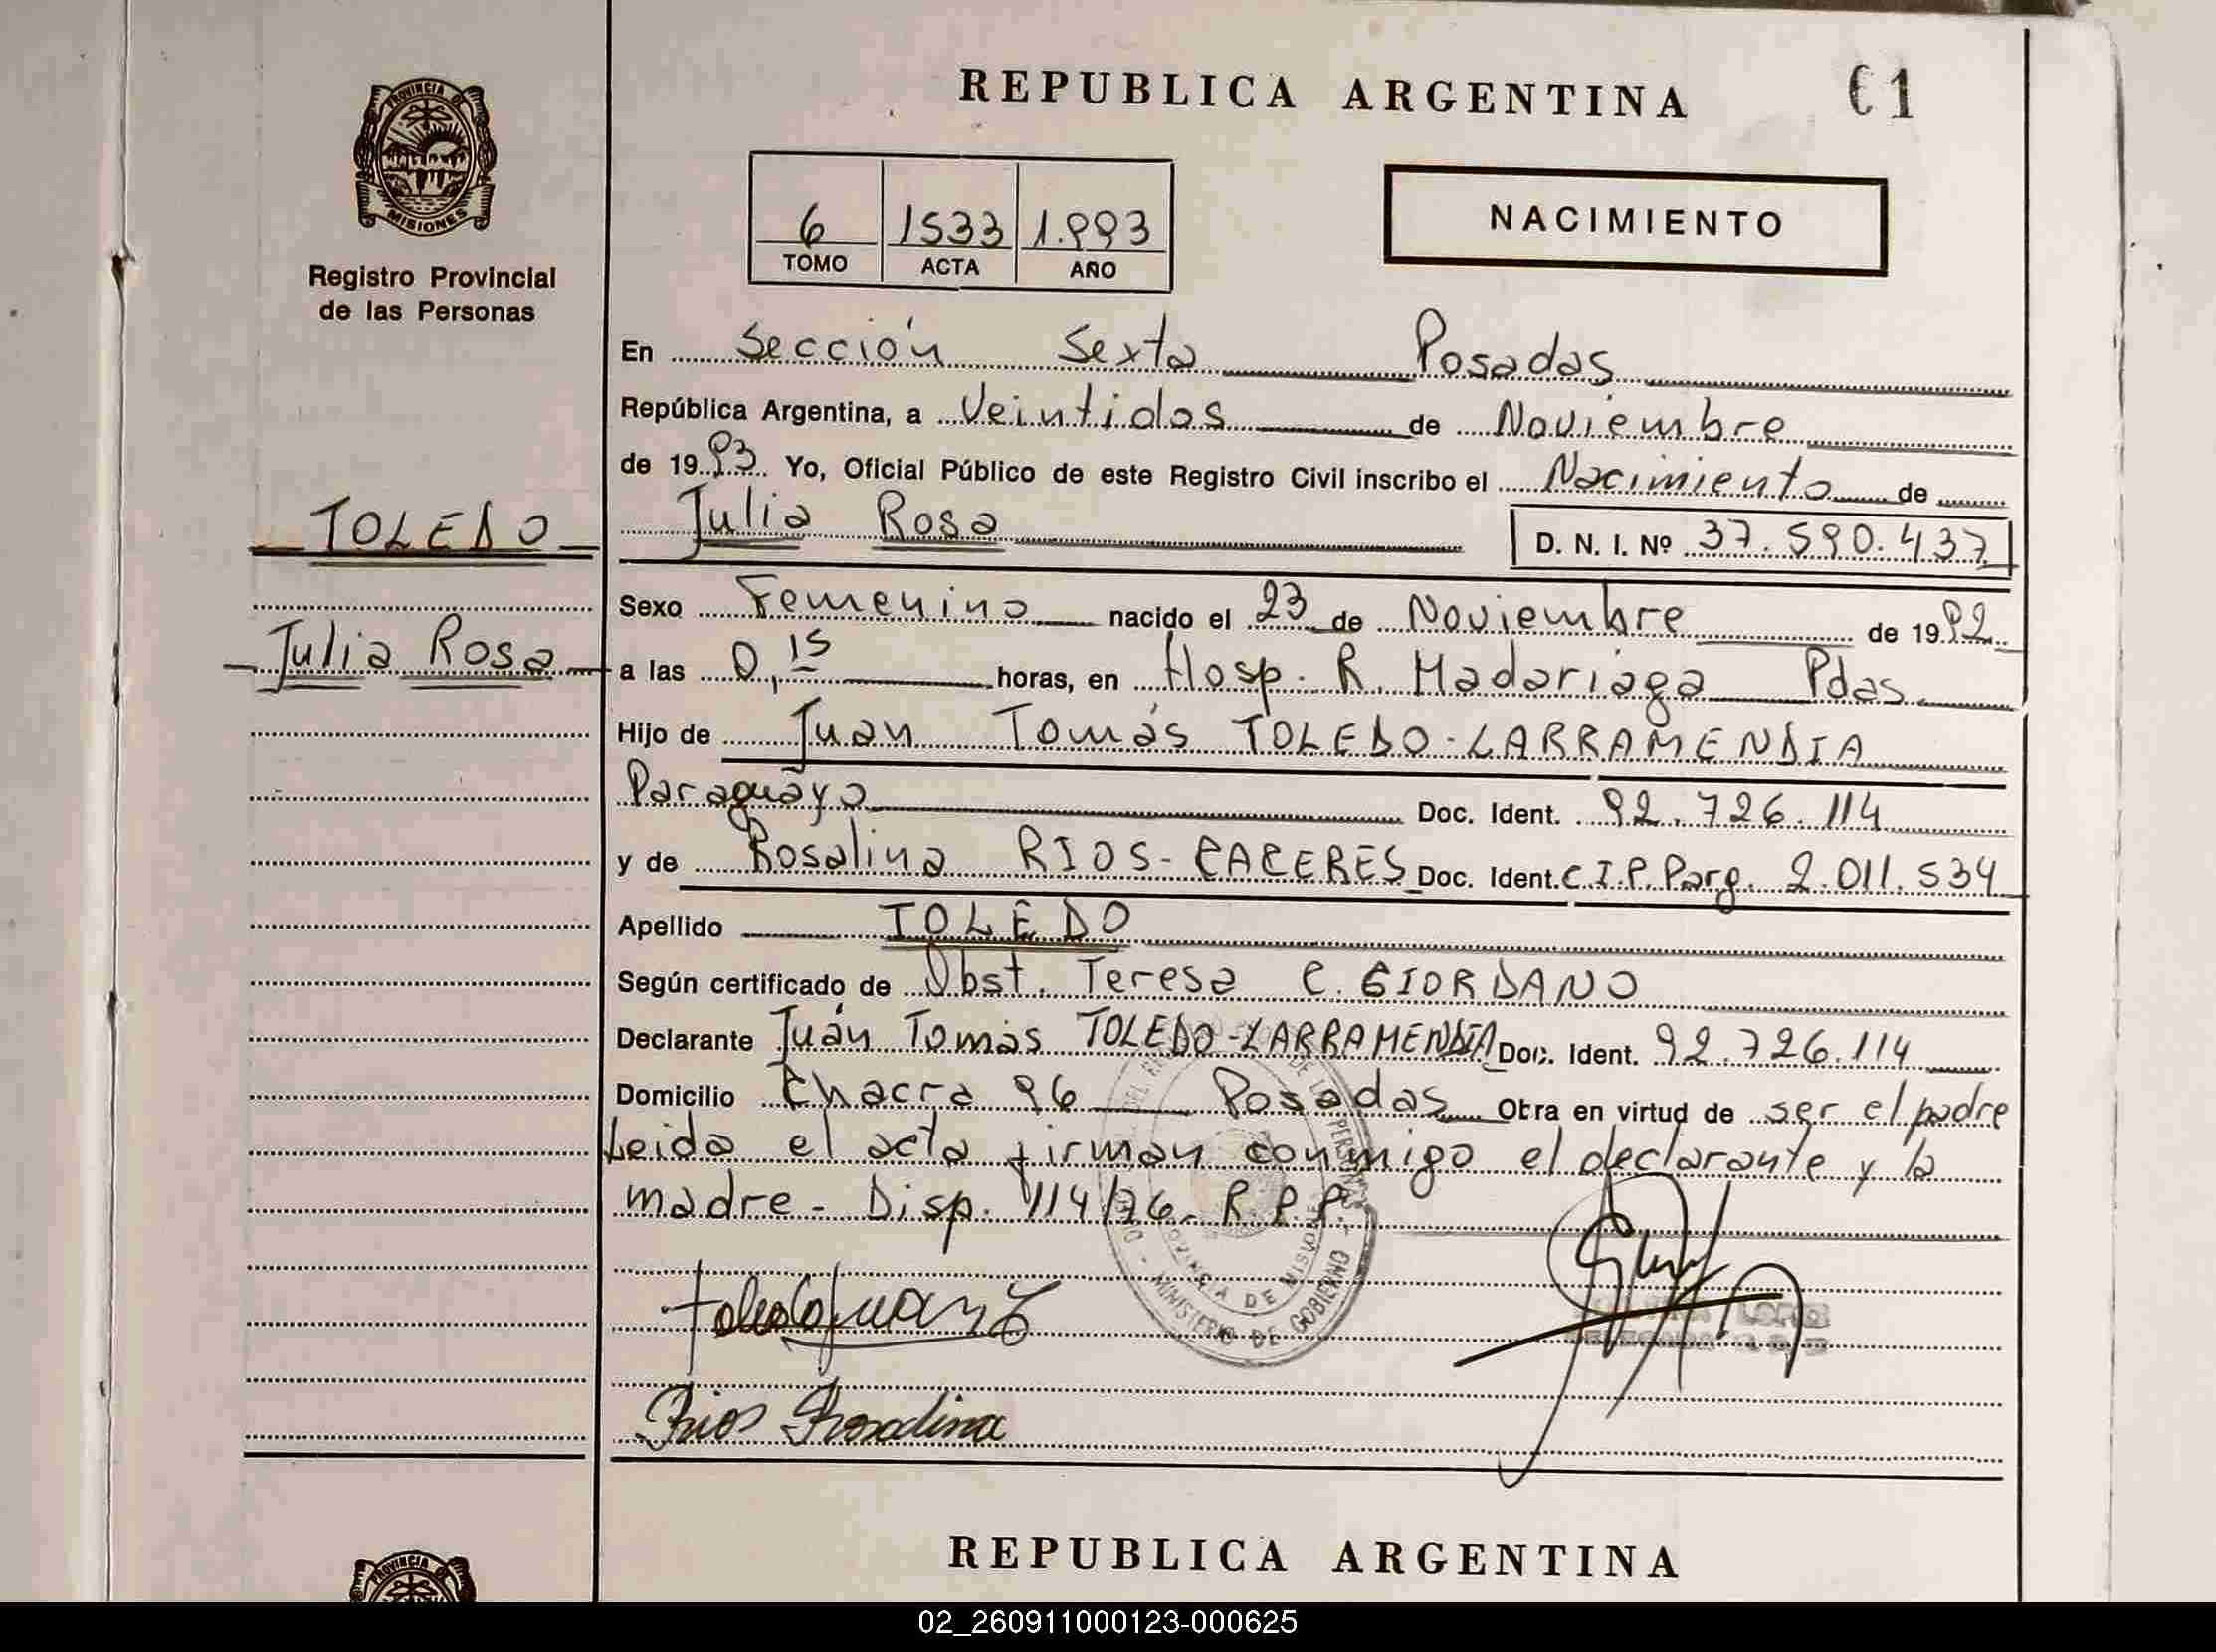 REPUBLICA ARGENTINA
61
PROVINCIA DE
MISIONES
Registro Provincial
de las Personas
6 1533 1.993
TOMO ACTA AÑO
NACIMIENTO
En Sección Sexta Posadas
República Argentina, a Veintidos de Noviembre
de 1993 Yo, Oficial Público de este Registro Civil inscribo el Nacimiento de
TOLEDO
Julia Rosa D. N. I. Nº 37.590.437
Sexo Femenino nacido el 23 de Noviembre de 1992
Julia Rosa
a las 0,15 horas, en Hosp. R. Madariaga Pdas
Hijo de Juan Tomás TOLEDO-LARRAMENDIA
Paraguayo Doc. Ident. 92.726.114
y de Rosalina RIOS-CACERES Doc. Ident. C.I.P. Parg. 2.011.534
Apellido TOLEDO
Según certificado de Obst. Teresa C. GIORDANO
Declarante Juán Tomás TOLEDO-LARRAMENDIA Doc. Ident. 92.726.114
Domicilio Chacra 96 Posadas Obra en virtud de ser el padre
Leida el acta firman conmigo el declarante y la
madre - Disp. 114/76. R.P.P.
PROVINCIA DE MISIONES
MINISTERIO DE GOBIERNO
Toledo Juan T
Rios Rosalina
REPUBLICA ARGENTINA
PROVINCIA DE
02_260911000123-000625